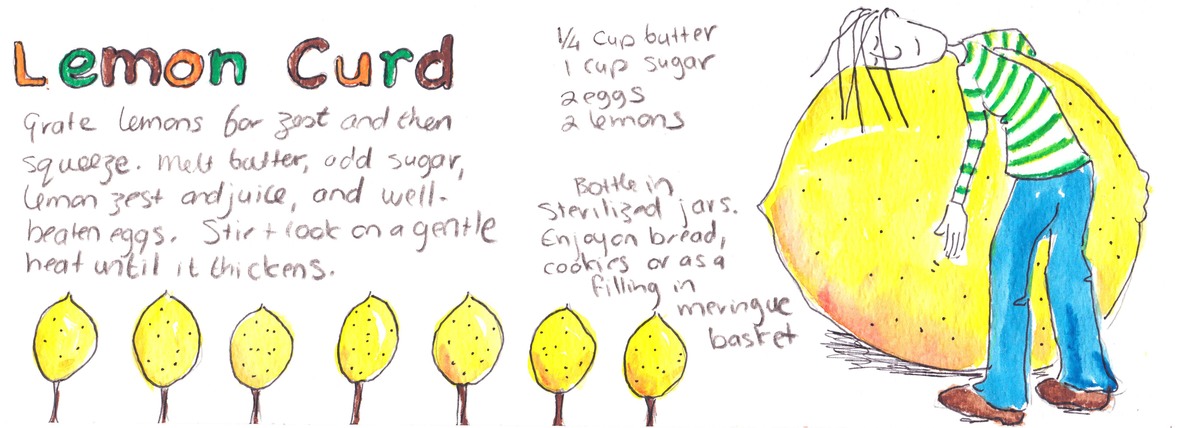 Lemon Curd
Grate lemons for zest and then
squeeze. Melt butter, add sugar,
lemon zest and juice, and well-
beaten eggs. Stir + cook on a gentle
heat until it thickens.
1/4 cup butter
1 cup sugar
2 eggs
2 lemons
Bottle in
sterilized jars.
Enjoy on bread,
cookies or as a
filling in
meringue
basket